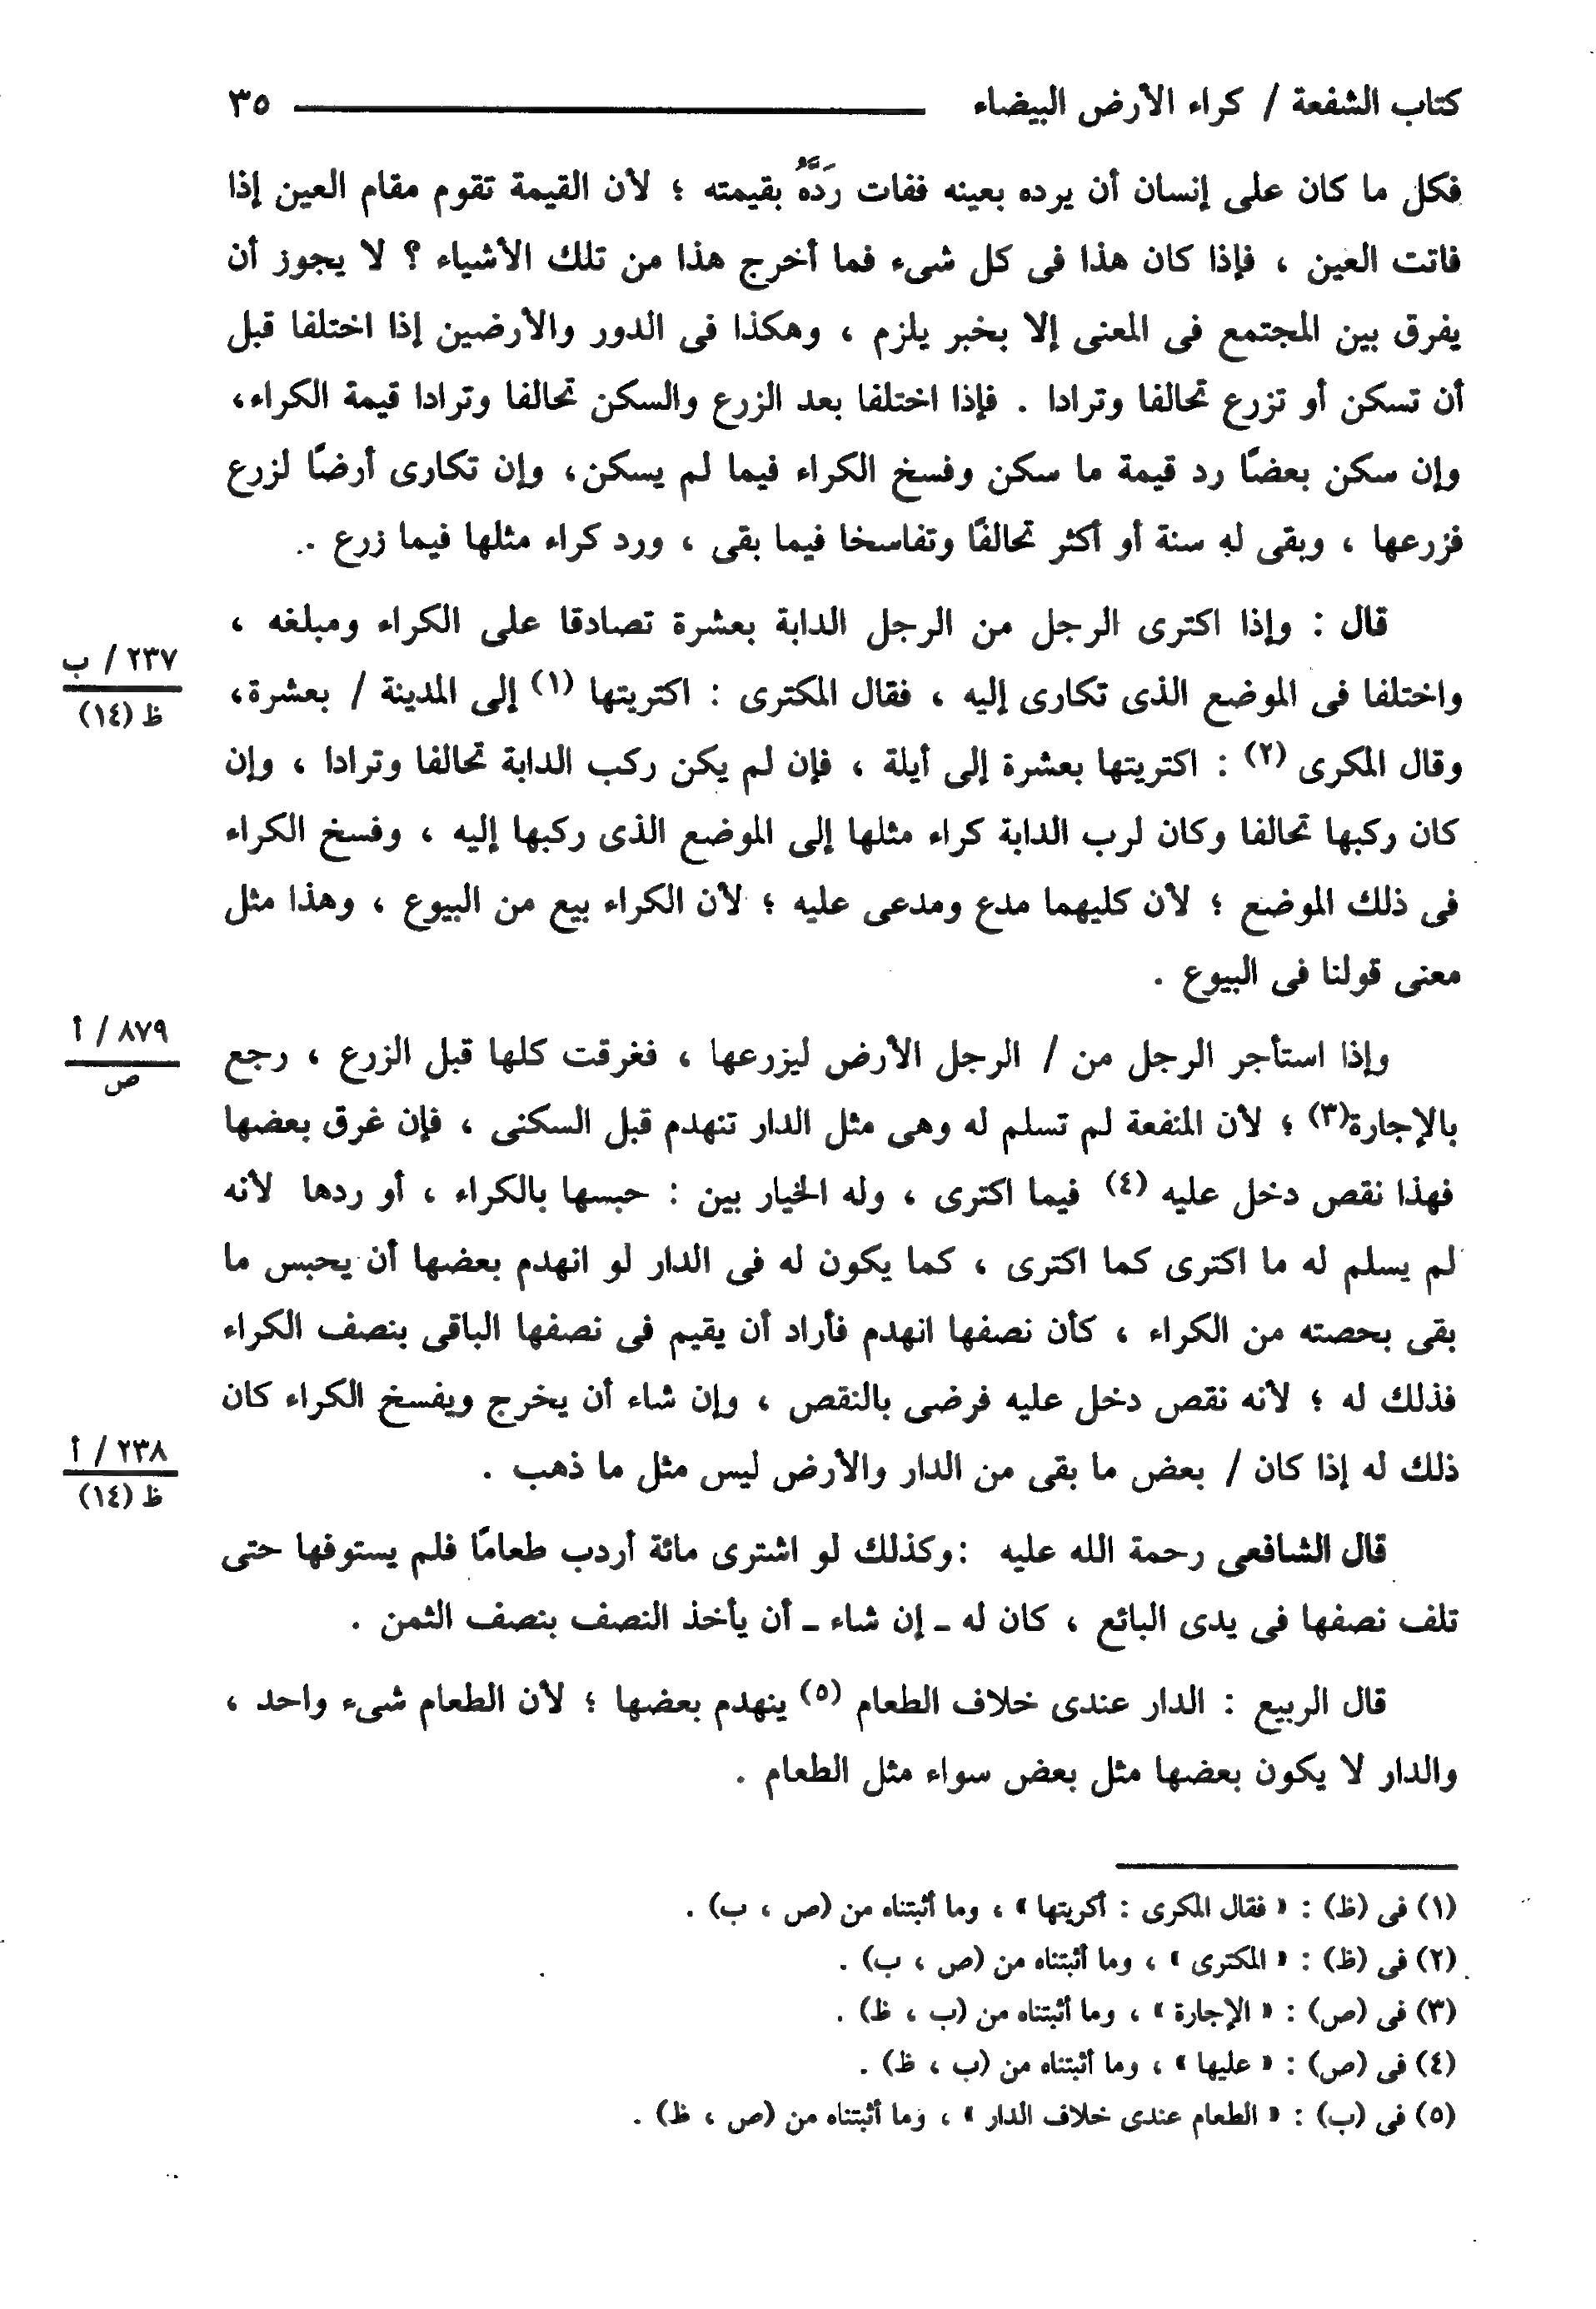 كتاب الشفعة / كراء الأرض البيضاء ٣٥
فكل ما كان على إنسان أن يرده بعينه ففات رَدَّهُ بقيمته ؛ لأن القيمة تقوم مقام العين إذا
فاتت العين ، فإذا كان هذا فى كل شىء فما أخرج هذا من تلك الأشياء ؟ لا يجوز أن
يفرق بين المجتمع فى المعنى إلا بخبر يلزم ، وهكذا فى الدور والأرضين إذا اختلفا قبل
أن تسكن أو تزرع تحالفا وترادا . فإذا اختلفا بعد الزرع والسكن تحالفا وترادا قيمة الكراء،
وإن سكن بعضًا رد قيمة ما سكن وفسخ الكراء فيما لم يسكن، وإن تكارى أرضًا لزرع
فزرعها ، وبقى له سنة أو أكثر تحالفًا وتفاسخا فيما بقى ، ورد كراء مثلها فيما زرع .
قال : وإذا اكترى الرجل من الرجل الدابة بعشرة تصادقا على الكراء ومبلغه ،
واختلفا فى الموضع الذى تكارى إليه ، فقال المكترى : اكتريتها (١) إلى المدينة / بعشرة،
٢٣٧ / ب
ظ (١٤)
وقال المكرى (٢) : اكتريتها بعشرة إلى أيلة ، فإن لم يكن ركب الدابة تحالفا وترادا ، وإن
كان ركبها تحالفا وكان لرب الدابة كراء مثلها إلى الموضع الذى ركبها إليه ، وفسخ الكراء
فى ذلك الموضع ؛ لأن كليهما مدع ومدعى عليه ؛ لأن الكراء بيع من البيوع ، وهذا مثل
معنى قولنا فى البيوع .
وإذا استأجر الرجل من / الرجل الأرض ليزرعها ، فغرقت كلها قبل الزرع ، رجع
٨٧٩ / أ
ص
بالإجارة(٣) ؛ لأن المنفعة لم تسلم له وهى مثل الدار تنهدم قبل السكنى ، فإن غرق بعضها
فهذا نقص دخل عليه (٤) فيما اكترى ، وله الخيار بين : حبسها بالكراء ، أو ردها لأنه
لم يسلم له ما اكترى كما اكترى ، كما يكون له فى الدار لو انهدم بعضها أن يحبس ما
بقى بحصته من الكراء ، كأن نصفها انهدم فأراد أن يقيم فى نصفها الباقى بنصف الكراء
فذلك له ؛ لأنه نقص دخل عليه فرضى بالنقص ، وإن شاء أن يخرج ويفسخ الكراء كان
ذلك له إذا كان / بعض ما بقى من الدار والأرض ليس مثل ما ذهب .
٢٣٨ / أ
ظ (١٤)
قال الشافعى رحمة الله عليه :وكذلك لو اشترى مائة أردب طعامًا فلم يستوفها حتى
تلف نصفها فى يدى البائع ، كان له ـ إن شاء ـ أن يأخذ النصف بنصف الثمن .
قال الربيع : الدار عندى خلاف الطعام (٥) ينهدم بعضها ؛ لأن الطعام شىء واحد ،
والدار لا يكون بعضها مثل بعض سواء مثل الطعام .
(١) فى (ظ) : « فقال المكرى : أكريتها » ، وما أثبتناه من (ص ، ب) .
(٢) فى (ظ) : « المكترى » ، وما أثبتناه من (ص ، ب) .
(٣) فى (ص) : « الإجارة » ، وما أثبتناه من (ب ، ظ) .
(٤) فى (ص) : « عليها » ، وما أثبتناه من (ب ، ظ) .
(٥) فى (ب) : « الطعام عندى خلاف الدار » ، وما أثبتناه من (ص ، ظ) .